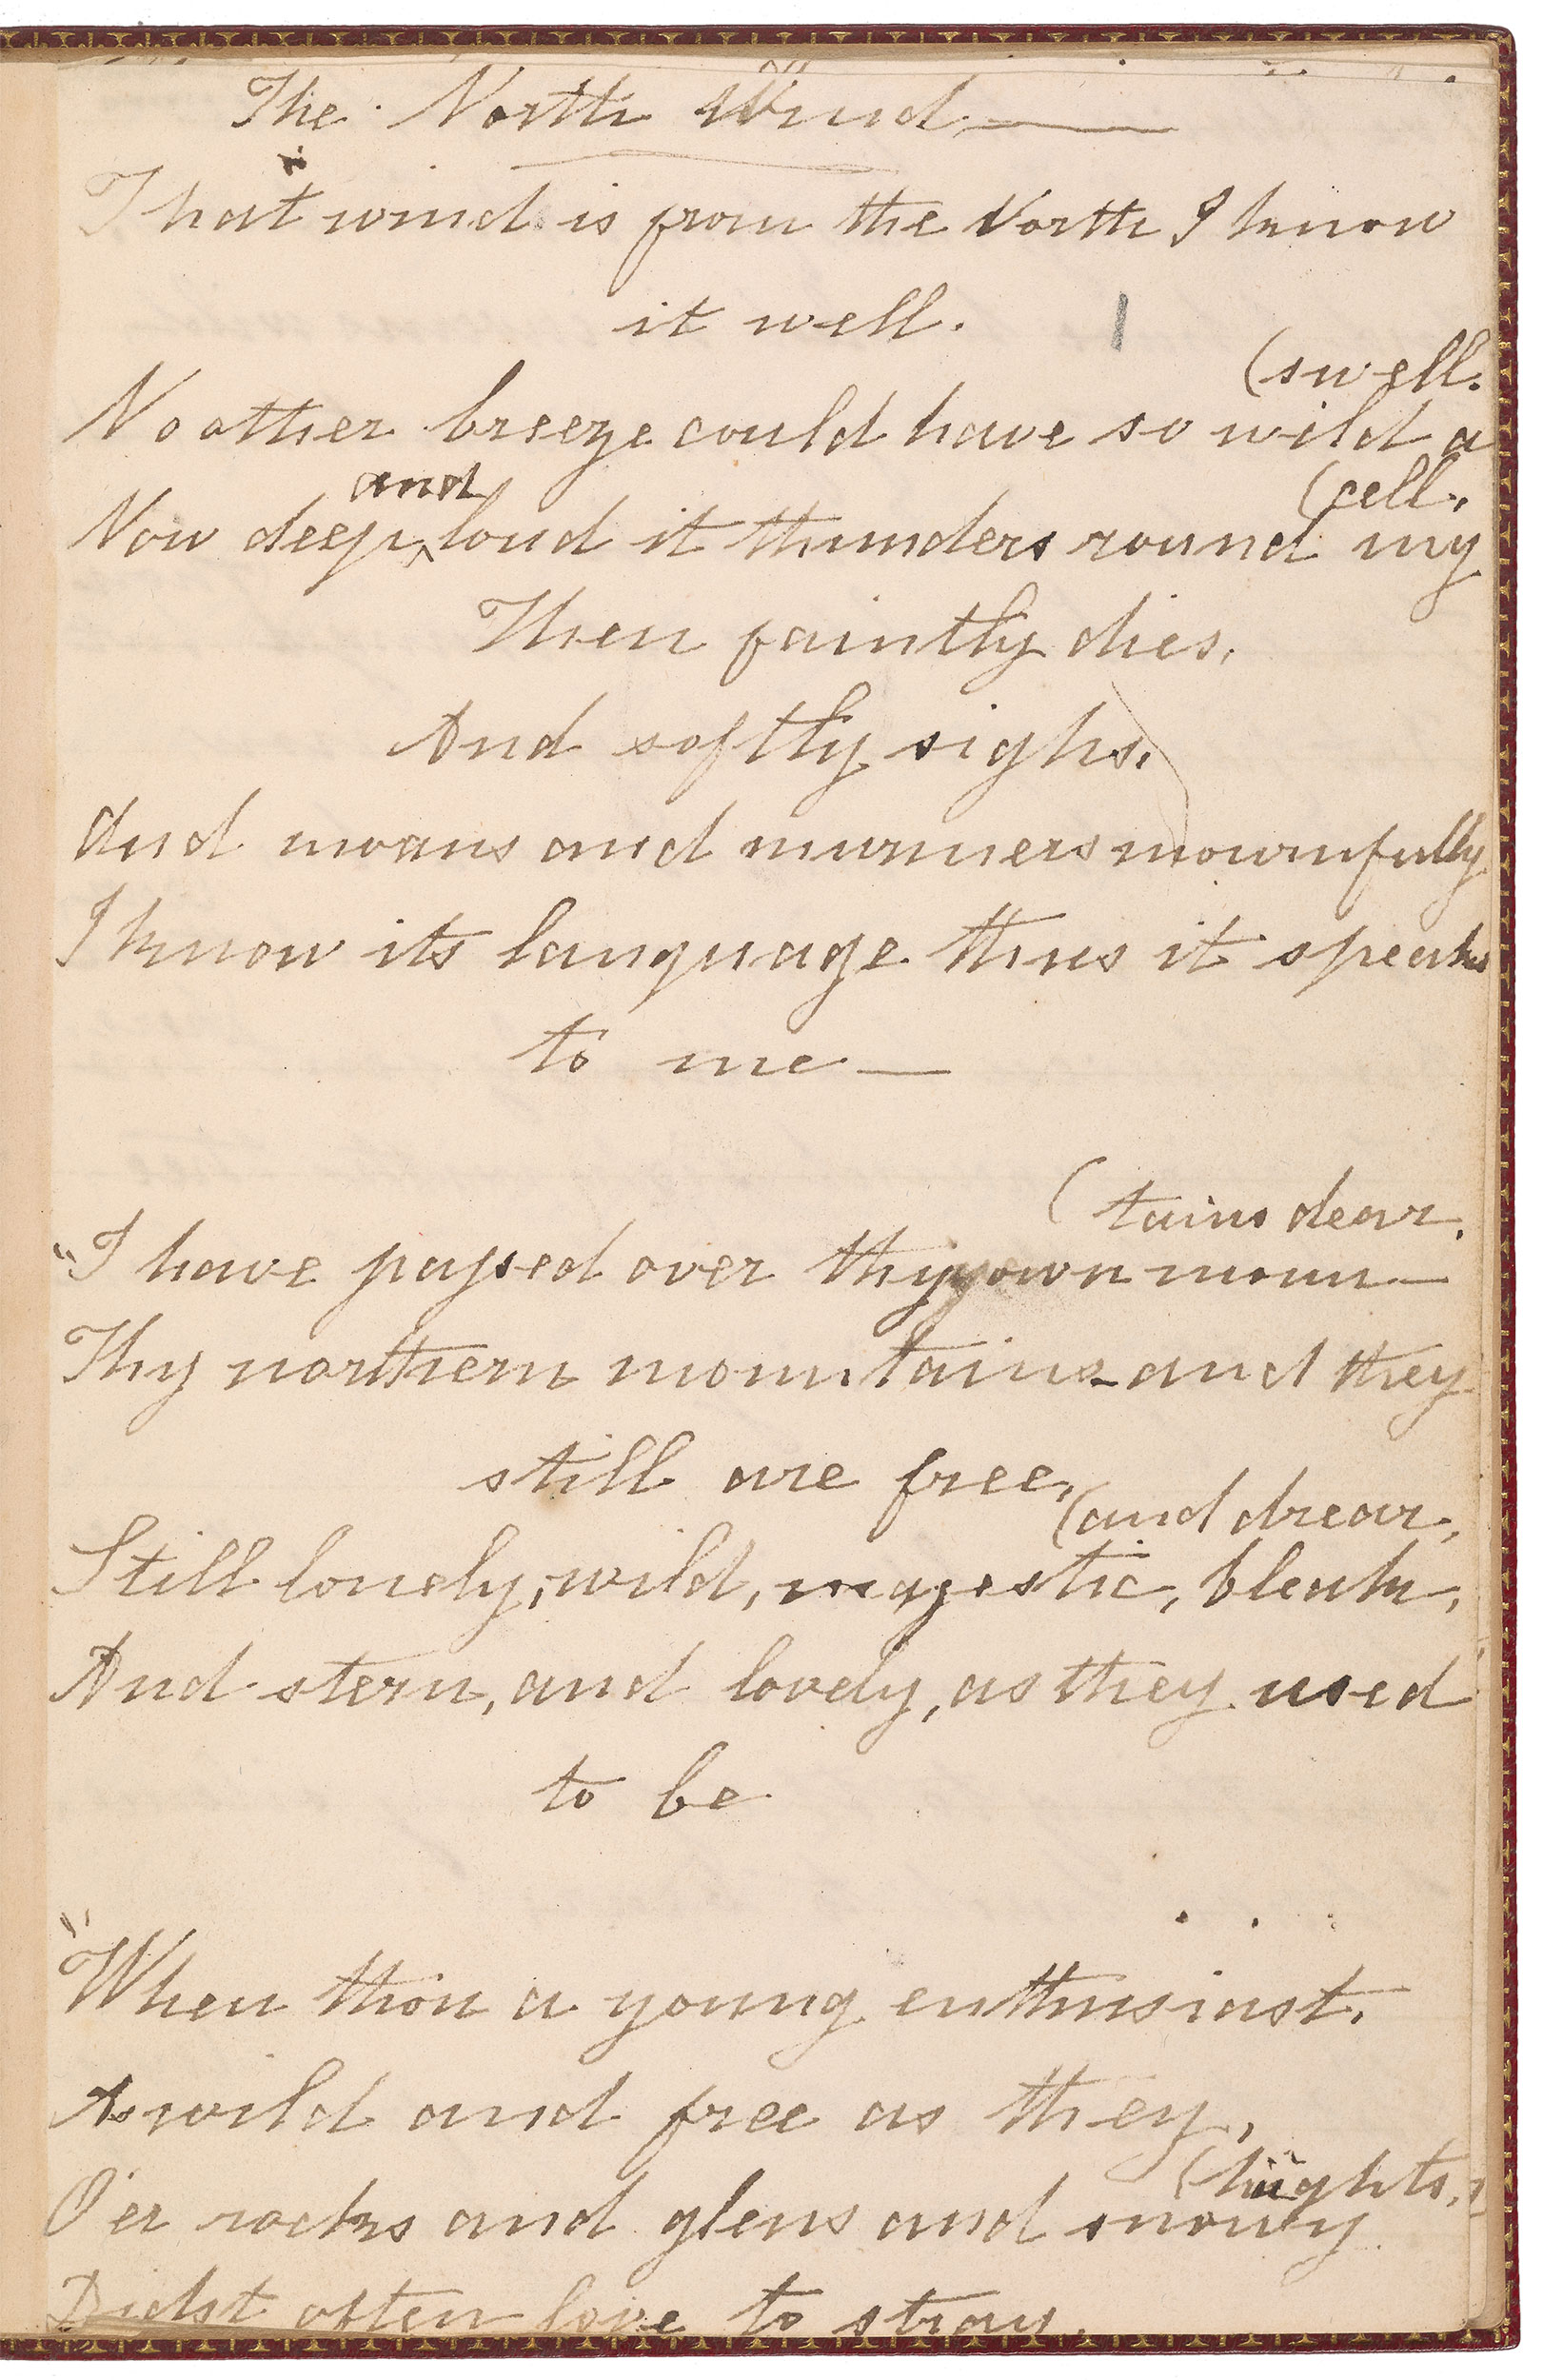 The North Wind —
That wind is from the North I know
it well.
(swell.
No other breeze could have so wild a
and
(cell.
Now deep, loud it thunders round my
Then faintly dies,
And softly sighs,
And moans and murmers mournfully
I know its language thus it speaks
to me —
(tains dear,
"I have passed over thy own moun—
Thy northern mountains and they
still are free,
(and drear,
Still lonely, wild, majestic, bleak,
And stern, and lovely, as they used
to be
"When thou a young enthusiast.
As wild and free as they,
(hights,
O'er rocks and glens and snowy
Didst often love to stray.